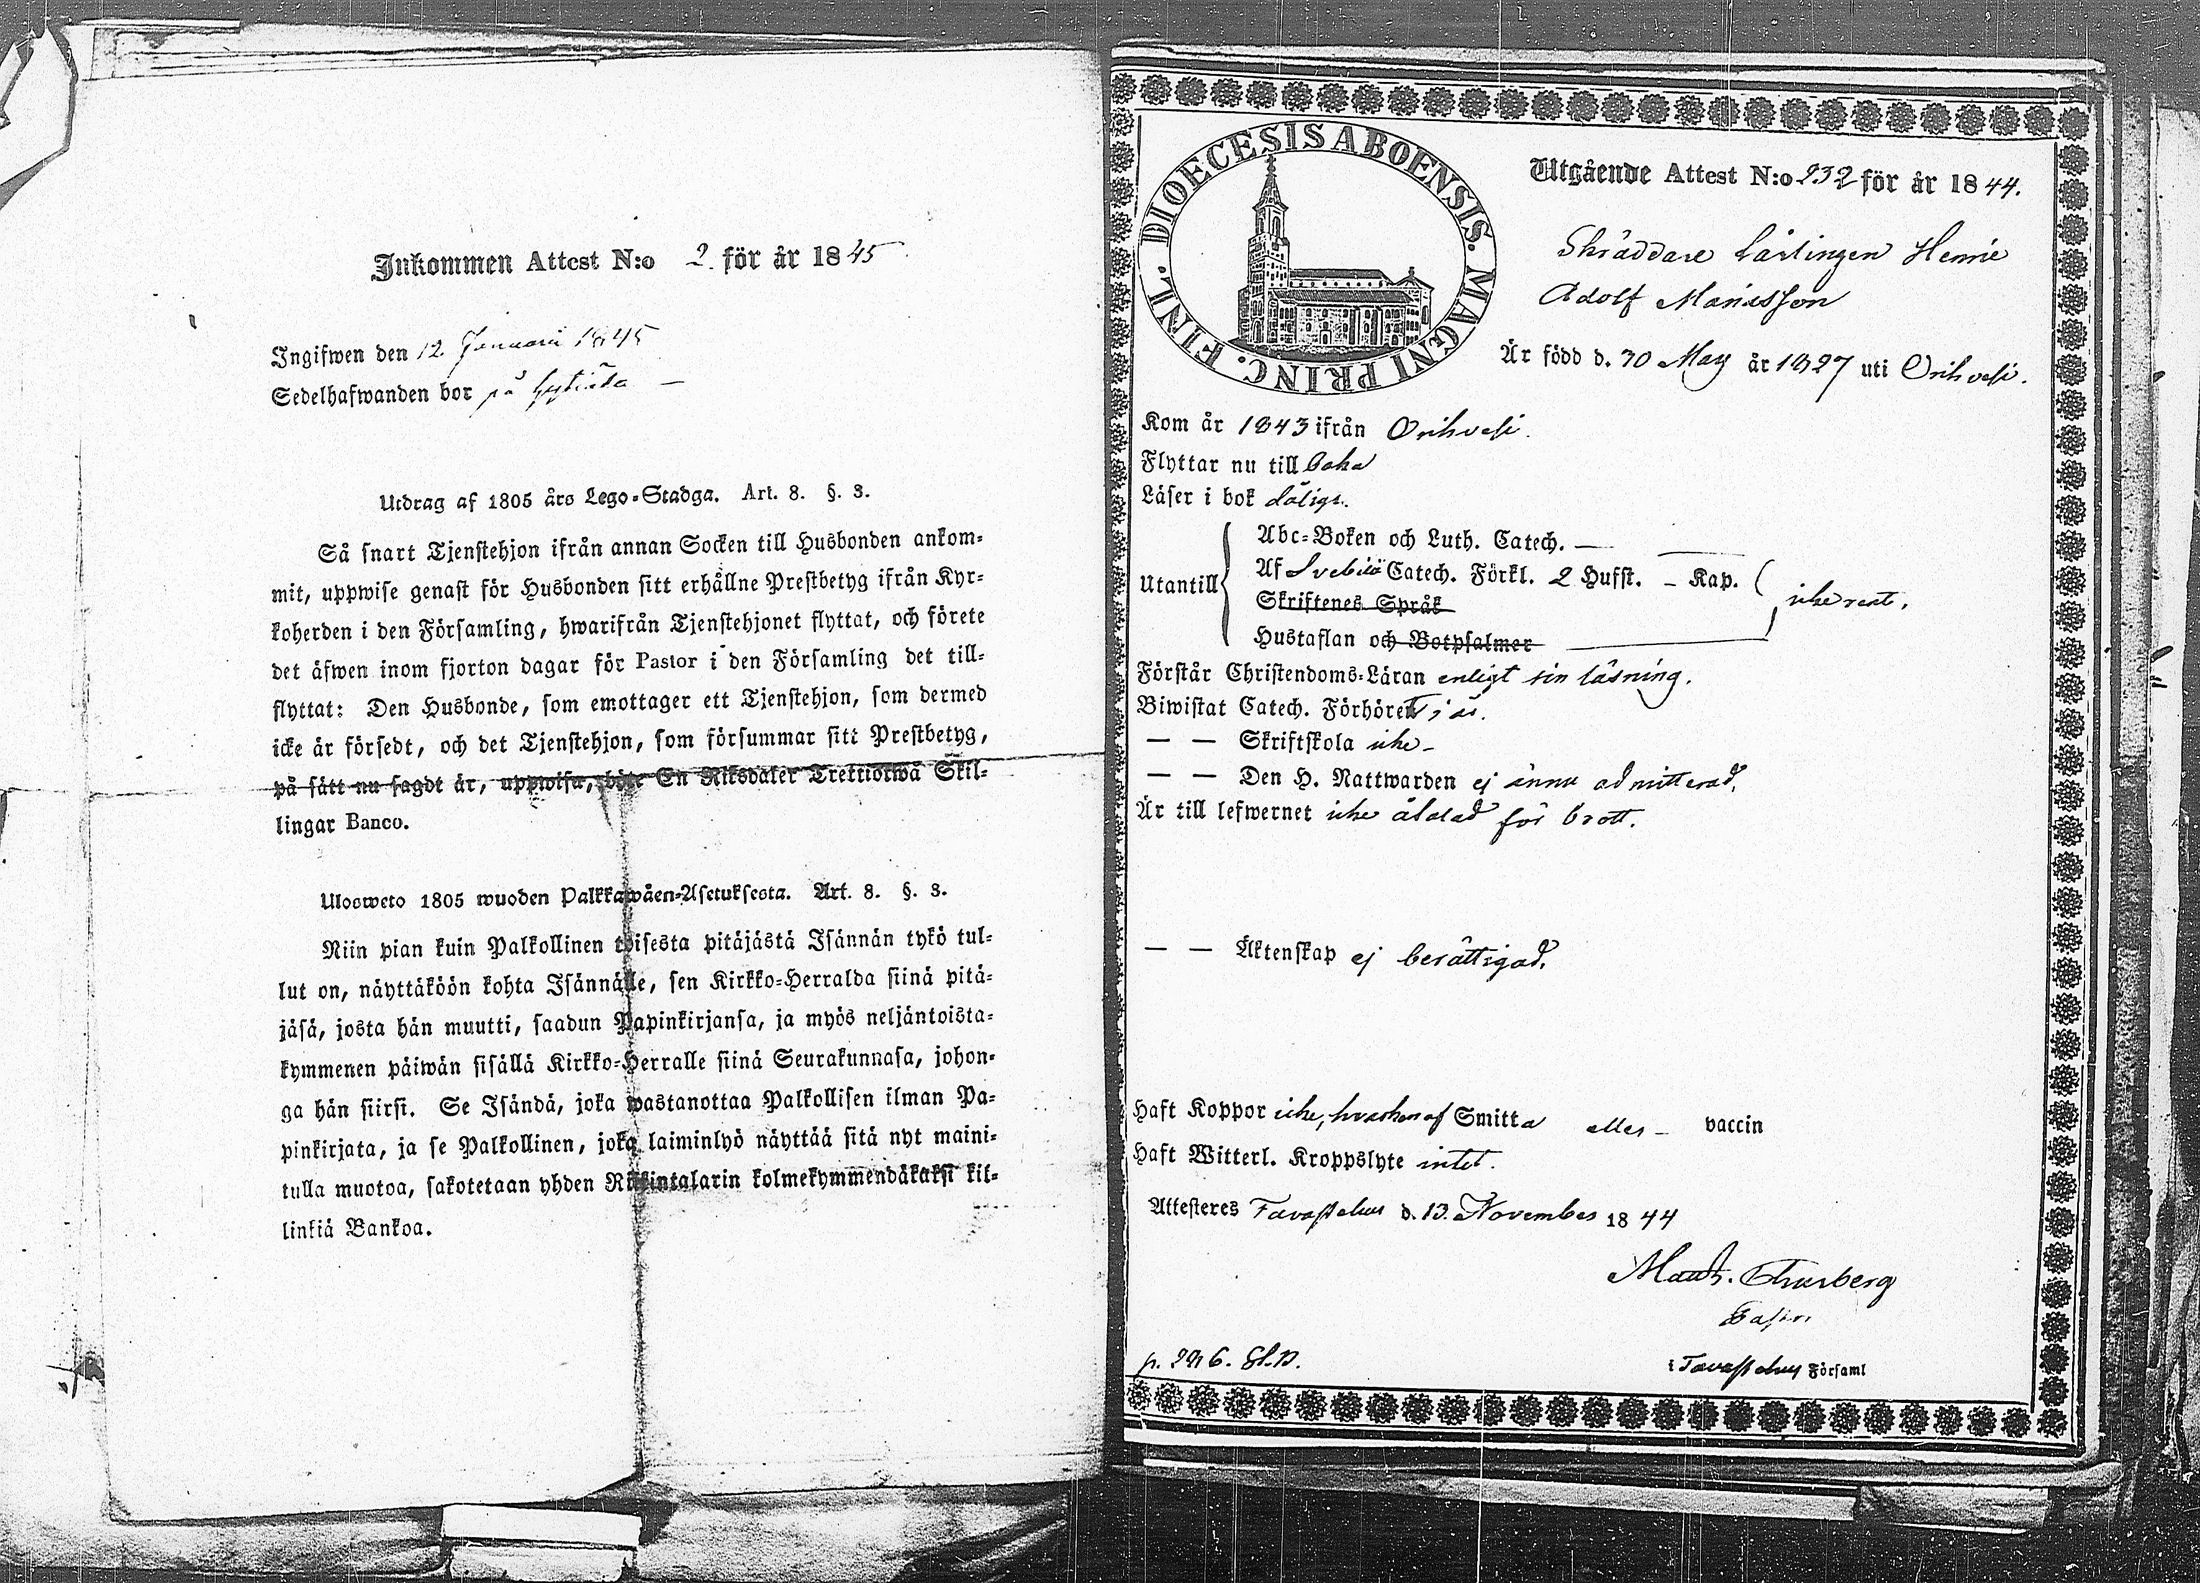 Inkommen Attest N:o 2. för år 1845
Ingifwen den 12. Januari 1845
Sedelhafwanden bor på
Utdrag af 1805 års Lego-Stadga. Art. 8. §. 3.
Så snart Tjenstehjon ifrån annan Socken till Husbonden ankom-
mit, uppwise genast för Husbonden sitt erhållne Prestbetyg ifrån Kyr-
koherden i den Församling, hwarifrån Tjenstehjonet flyttat, och förete
det äfwen inom fjorton dagar för Pastor i den Församling det till-
flyttat: Den Husbonde, som emottager ett Tjenstehjon, som dermed
icke är försedt, och det Tjenstehjon, som försummar sitt Prestbetyg,
på sätt nu sagdt är, uppwisa, böte En Riksdaler Trettiotwå Skil-
lingar Banco.
Ulosweto 1805 wuoden Palkkawäen-Asetuksesta. Art. 8. §. 3.
Niin pian kuin Palkollinen toisesta pitäjästä Isännän tykö tul-
lut on, näyttäköön kohta Isännälle, sen Kirkko-Herralda siinä pitä-
jäsä, josta hän muutti, saadun Papinkirjansa, ja myös neljäntoista-
kymmenen päiwän sisällä Kirkko-Herralle siinä Seurakunnasa, johon-
ga hän siirsi. Se Isändä, joka wastanottaa Palkollisen ilman Pa-
pinkirjata, ja se Palkollinen, joka laiminlyö näyttää sitä nyt maini-
tulla muotoa, sakotetaan yhden Riksintalarin kolmekymmendäkaksi kil-
linkiä Bankoa.
DIOECESIS ABOENSIS. MAGNI PRINC. FINL.
Utgående Attest N:o 232 för år 1844.
Skräddare Lärlingen Henric
Adolf Mariasson
Är född d. 30 May år 1827 uti Orihvesi.
Kom år 1843 ifrån Orihvesi.
Flyttar nu till
Läser i bok dåligt.
Abc-Boken och Luth. Catech. —
Utantill Af Svebilii Catech. Förkl. 2 Hufst. - Kap. icke rent.
Skriftenes Språk
Hustaflan och Botpsalmer
Förstår Christendoms-Läran enligt sin läsning.
Biwistat Catech. Förhöret
— — Skriftskola icke -
— — Den H. Nattwarden ej ännu admitterad.
Är till lefwernet icke åtalad för brott.
— — Äktenskap ej berättigad.
Haft Koppor icke, hvarken af Smitta eller - vaccin
Haft Witterl. Kroppslyte intet.
Attesteres Tavastehus d. 13. November 1844
Thusberg
Pastor
p. 296.
i Tavastehus Församl